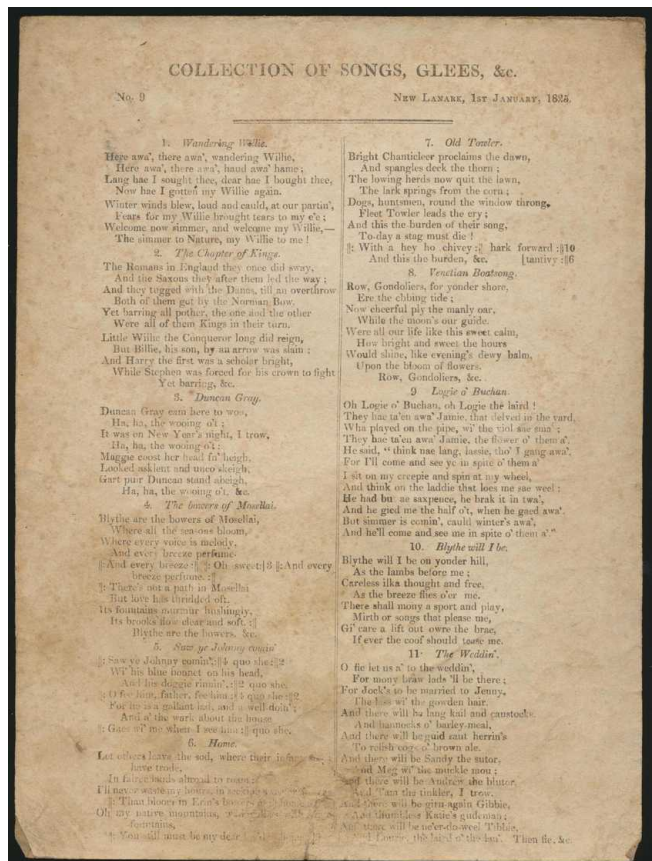 COLLECTION OF SONGS, GLEES, &c.
No. 9
NEW LANARK, 1ST JANUARY, 1825.
1. Wandering Willie.
Here awa', there awa', wandering Willie,
Here awa', there awa', haud awa' hame;
Lang hae I sought thee, dear hae I bought thee,
Now hae I gotten my Willie again.
Winter winds blew, loud and cauld, at our partin',
Fears for my Willie brought tears to my e'e;
Welcome now simmer, and welcome my Willie,—
The simmer to Nature, my Willie to me!
2. The Chapter of Kings.
The Romans in England they once did sway,
And the Saxons they after them led the way;
And they tugged with the Danes, till an overthrow
Both of them got by the Norman Bow.
Yet barring all pother, the one and the other
Were all of them Kings in their turn.
Little Willie the Conqueror long did reign,
But Billie, his son, by an arrow was slain;
And Harry the first was a scholar bright,
While Stephen was forced for his crown to fight
Yet barring, &c.
3. Duncan Gray.
Duncan Gray cam here to woo,
Ha, ha, the wooing o't;
It was on New Year's night, I trow,
Ha, ha, the wooing o't:
Maggie coost her head fu' heigh,
Looked asklent and unco skeigh,
Gart puir Duncan stand abeigh,
Ha, ha, the wooing o't. &c.
4. The bowers of Mosellai.
Blythe are the bowers of Mosellai,
Where all the seasons bloom,
Where every voice is melody,
And every breeze perfume
:And every breeze: Oh sweet: 8 :And every
breeze perfume.
There's not a path in Mosellai
But love has thridded oft.
Its fountains murmur hushingly,
Its brooks flow clear and soft.
Blythe are the bowers, &c.
5. Saw ye Johnny comin'
Saw ye Johnny comin', quo she
Wi' his blue bonnet on his head,
And his doggie rinnin', quo she,
O fee him, father, fee him: quo she
For he is a gallant lad, and a well doin';
And a' the wark about the house
Gaes wi' me when I see him: quo she.
6. Home.
Let others leave the sod, where their
have trode,
In fairer lands abroad to roam;
I'll never
Than blooms in Erin's
Oh my native mountains,
fountains,
You still must be my dear
7. Old Towler.
Bright Chanticleer proclaims the dawn,
And spangles deck the thorn;
The lowing herds now quit the lawn,
The lark springs from the corn;
Dogs, huntsmen, round the window throng,
Fleet Towler leads the cry;
And this the burden of their song,
To-day a stag must die!
:With a hey ho chivey: hark forward: 10
And this the burden, &c. [tantivy: 6
8. Venetian Boatsong.
Row, Gondoliers, for yonder shore,
Ere the ebbing tide;
Now cheerful ply the manly oar,
While the moon's our guide.
Were all our life like this sweet calm,
How bright and sweet the hours
Would shine, like evening's dewy balm,
Upon the bloom of flowers.
Row, Gondoliers, &c.
9 Logie o' Buchan
Oh Logie o' Buchan, oh Logie the laird!
They hae ta'en awa' Jamie, that delved in the yard,
Wha played on the pipe, wi' the viol sae sma';
They hae ta'en awa' Jamie, the flower o' them a'.
He said, "think nae lang, lassie, tho' I gang awa',
For I'll come and see ye in spite o' them a'
I sit on my creepie and spin at my wheel,
And think on the laddie that loes me sae weel;
He had but ae saxpence, he brak it in twa',
And he gied me the half o't, when he gaed awa'
But simmer is comin', cauld winter's awa',
And he'll come and see me in spite o' them a'"
10. Blythe will I be.
Blythe will I be on yonder hill,
As the lambs before me;
Careless ilka thought and free,
As the breeze flies o'er me.
There shall mony a sport and play,
Mirth or songs that please me,
Gi' care a lift out owre the brae,
If ever the coof should tease me.
11. The Weddin'.
O fie let us a' to the weddin',
For mony braw lads 'll be there;
For Jock's to be married to Jenny,
The lass wi' the gowden hair.
And there will be lang kail and caustocks
And bannocks o' barley-meal,
And there will be guid saut herrin's
To relish cogs o' brown ale.
And there will be Sandy the sutor,
And Meg wi' the muckle mou;
And there will be Andrew the blutor,
And Tam the tinkler, I trow.
And there will be girn again Gibbie,
And thumbless Katie's gudeman;
And there will be ne'er-do-weel Tibbie,
the laird o' the lan'. Then fie, &c.